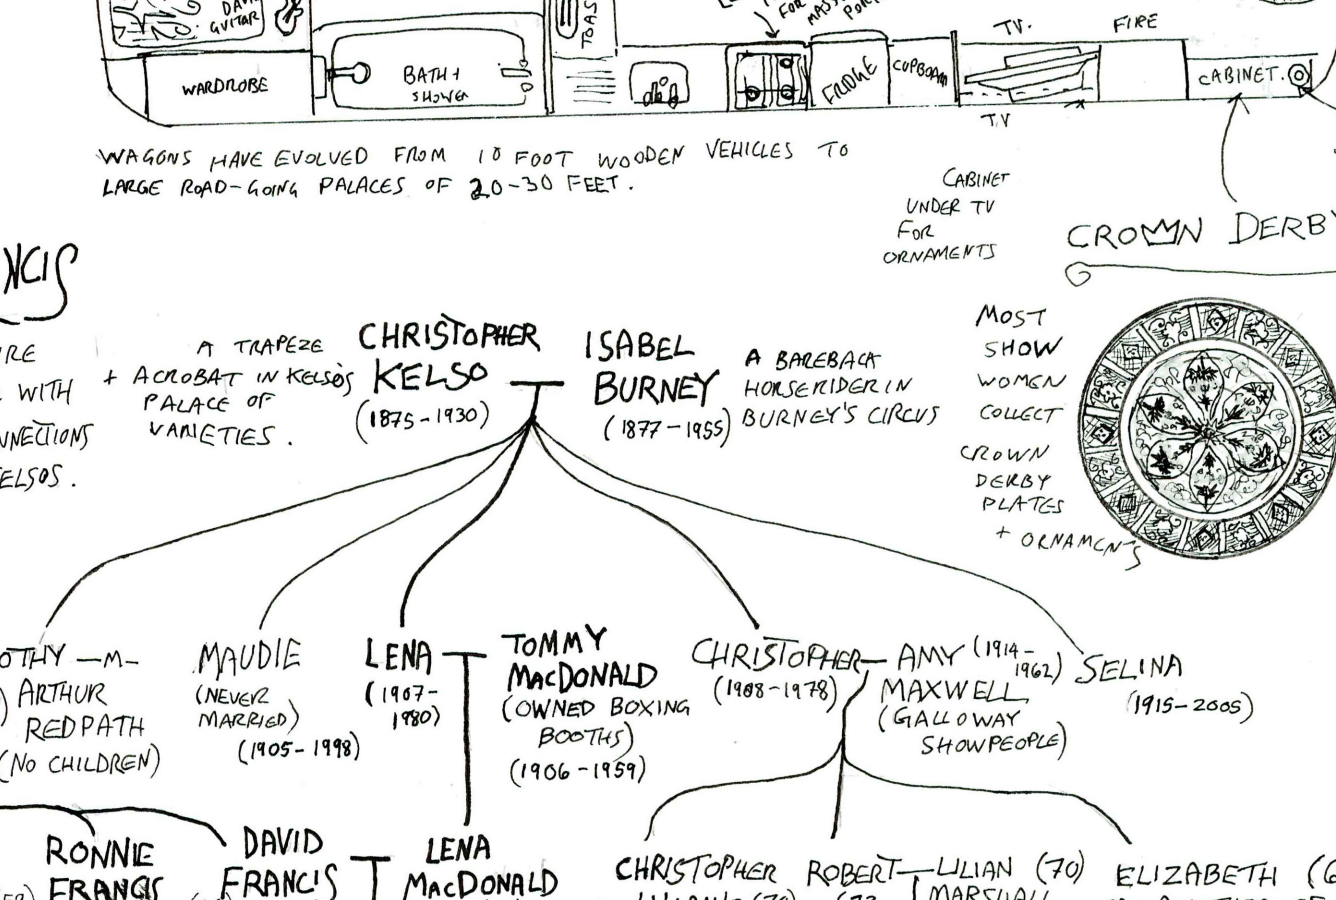 GUITAR
WARDROBE
BATH +
SHOWER
FOR
FRIDGE
CUPBOARD
TV.
FIRE
TV
CABINET.
WAGONS HAVE EVOLVED FROM 10 FOOT WOODEN VEHICLES TO
LARGE ROAD-GOING PALACES OF 20-30 FEET.
CABINET
UNDER TV
FOR
ORNAMENTS
CROWN DERBY
NCIS
RE
WITH
NNECTIONS
ELSOS.
A TRAPEZE
+ ACROBAT IN KELSO'S
PALACE OF
VARIETIES.
CHRISTOPHER
KELSO
(1875-1930)
ISABEL
BURNEY
(1877-1955)
A BAREBACK
HORSERIDER IN
BURNEY'S CIRCUS
MOST
SHOW
WOMEN
COLLECT
CROWN
DERBY
PLATES
+ ORNAMENTS
OTHY -M-
ARTHUR
REDPATH
(NO CHILDREN)
MAUDIE
(NEVER
MARRIED)
(1905-1998)
LENA
(1907-
1980)
TOMMY
MACDONALD
(OWNED BOXING
BOOTHS)
(1906-1959)
CHRISTOPHER
(1908-1978)
AMY (1914-
1962)
MAXWELL
(GALLOWAY
SHOWPEOPLE)
SELINA
(1915-2005)
RONNIE
FRANCIS
DAVID
FRANCIS
LENA
MACDONALD
CHRISTOPHER
ROBERT
LILIAN (70)
MARSHALL
ELIZABETH